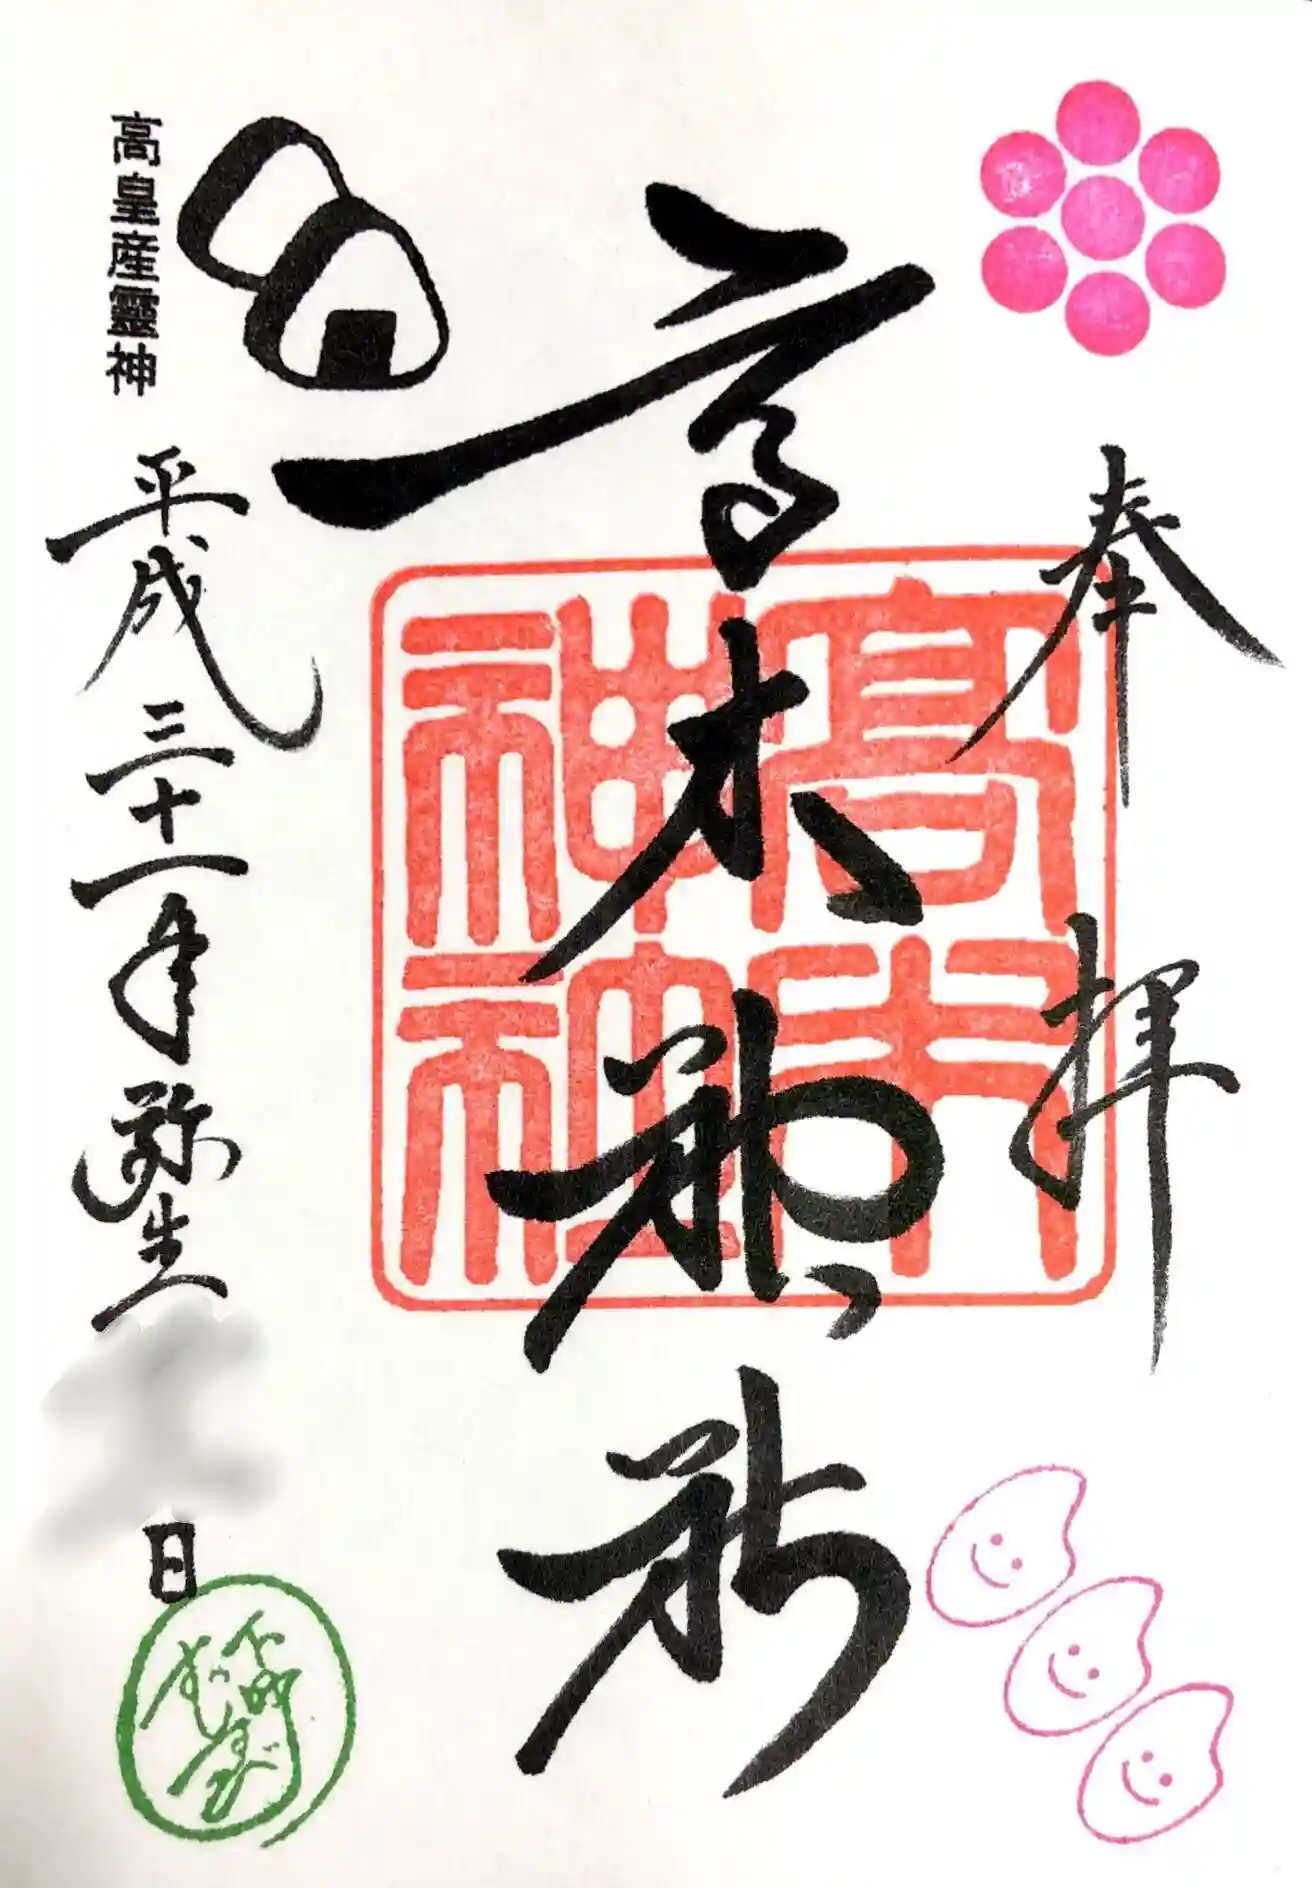 奉拝
高木神社
高木神社神社
平成三十一年弥生
日
高皇産靈神